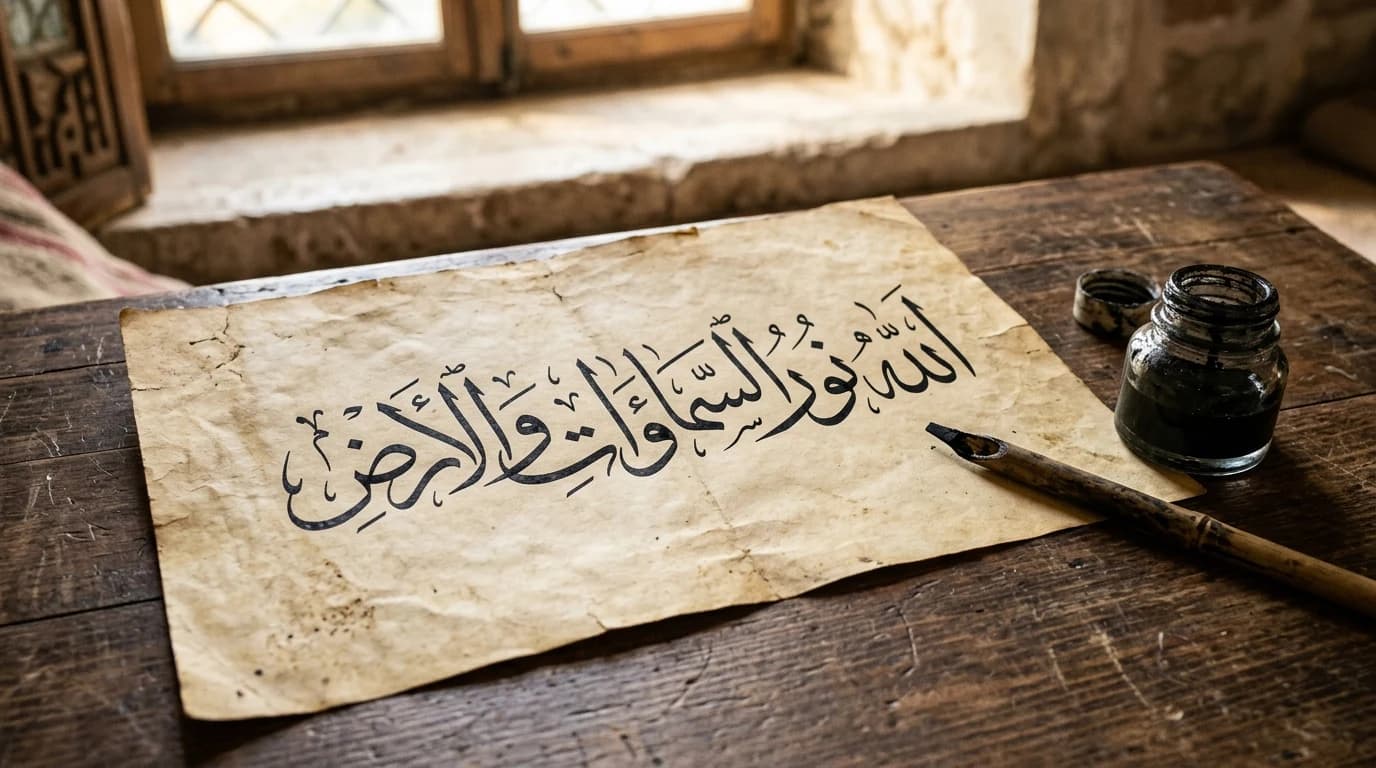 اللَّهُ نُورُ السَّمَاوَاتِ وَالْأَرْضِ